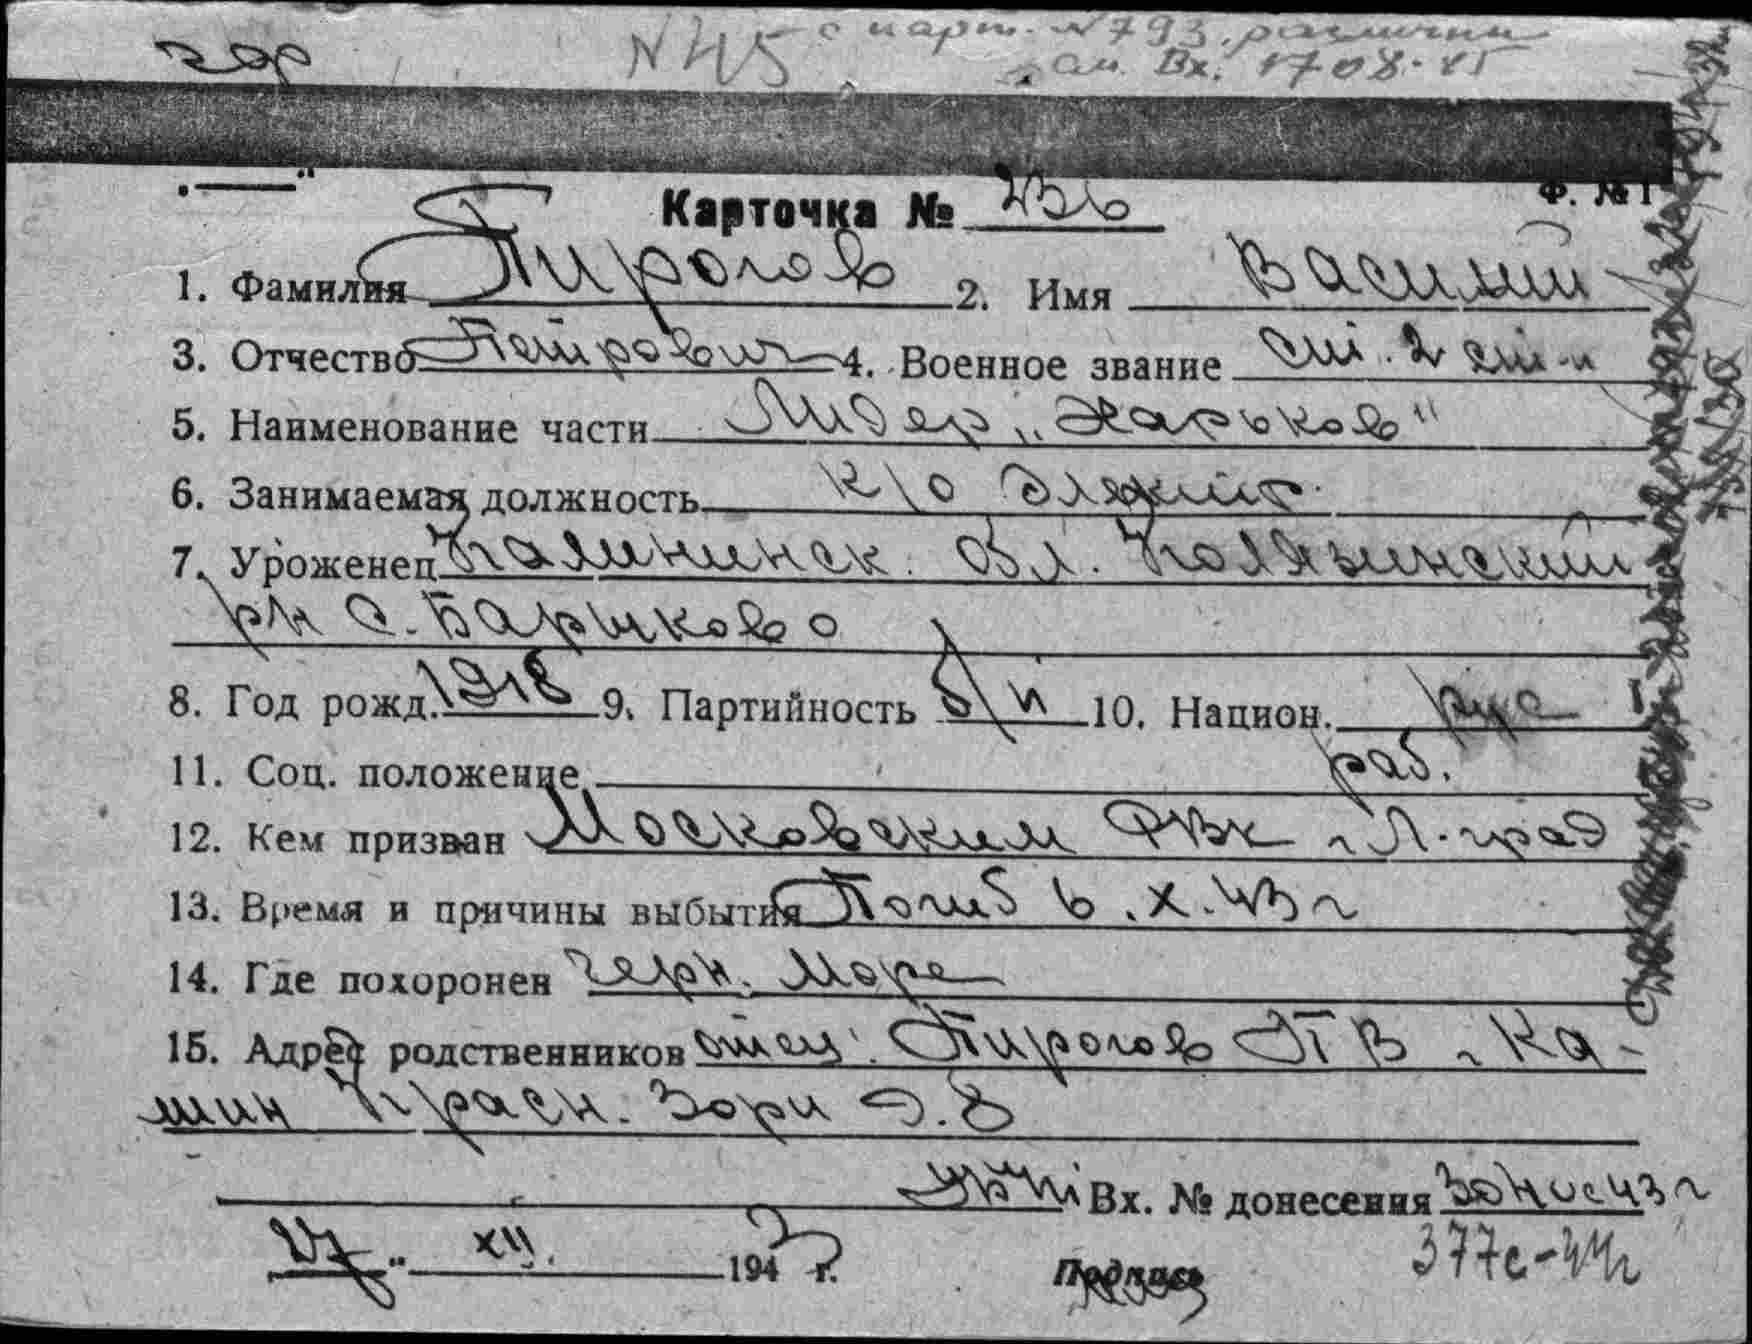 N 45 с карт. N 793, различии
ам. Вх. 1708-45
Ф. № 1
Карточка №
1. Фамилия Пирогов 2. Имя Василий
3. Отчество Петрович 4. Военное звание ст. 2 ст-и
5. Наименование части Лидер „Харьков"
6. Занимаемая должность к/о электр.
7. Уроженец Калининск. обл. Колязинский
рн с. Бариково
8. Год рожд. 1918 9. Партийность б/п 10. Национ. рус
11. Соц. положение раб.
12. Кем призван Московским РВК г Л-град
13. Время и причины выбытия Погиб 6.X.43 г
14. Где похоронен Черн. море
15. Адрес родственников отец. Пирогов П В г. Ка-
шин Красн. Зори д. 8
Вх. № донесения
XII. 1943 г. Подпись
377с-44г